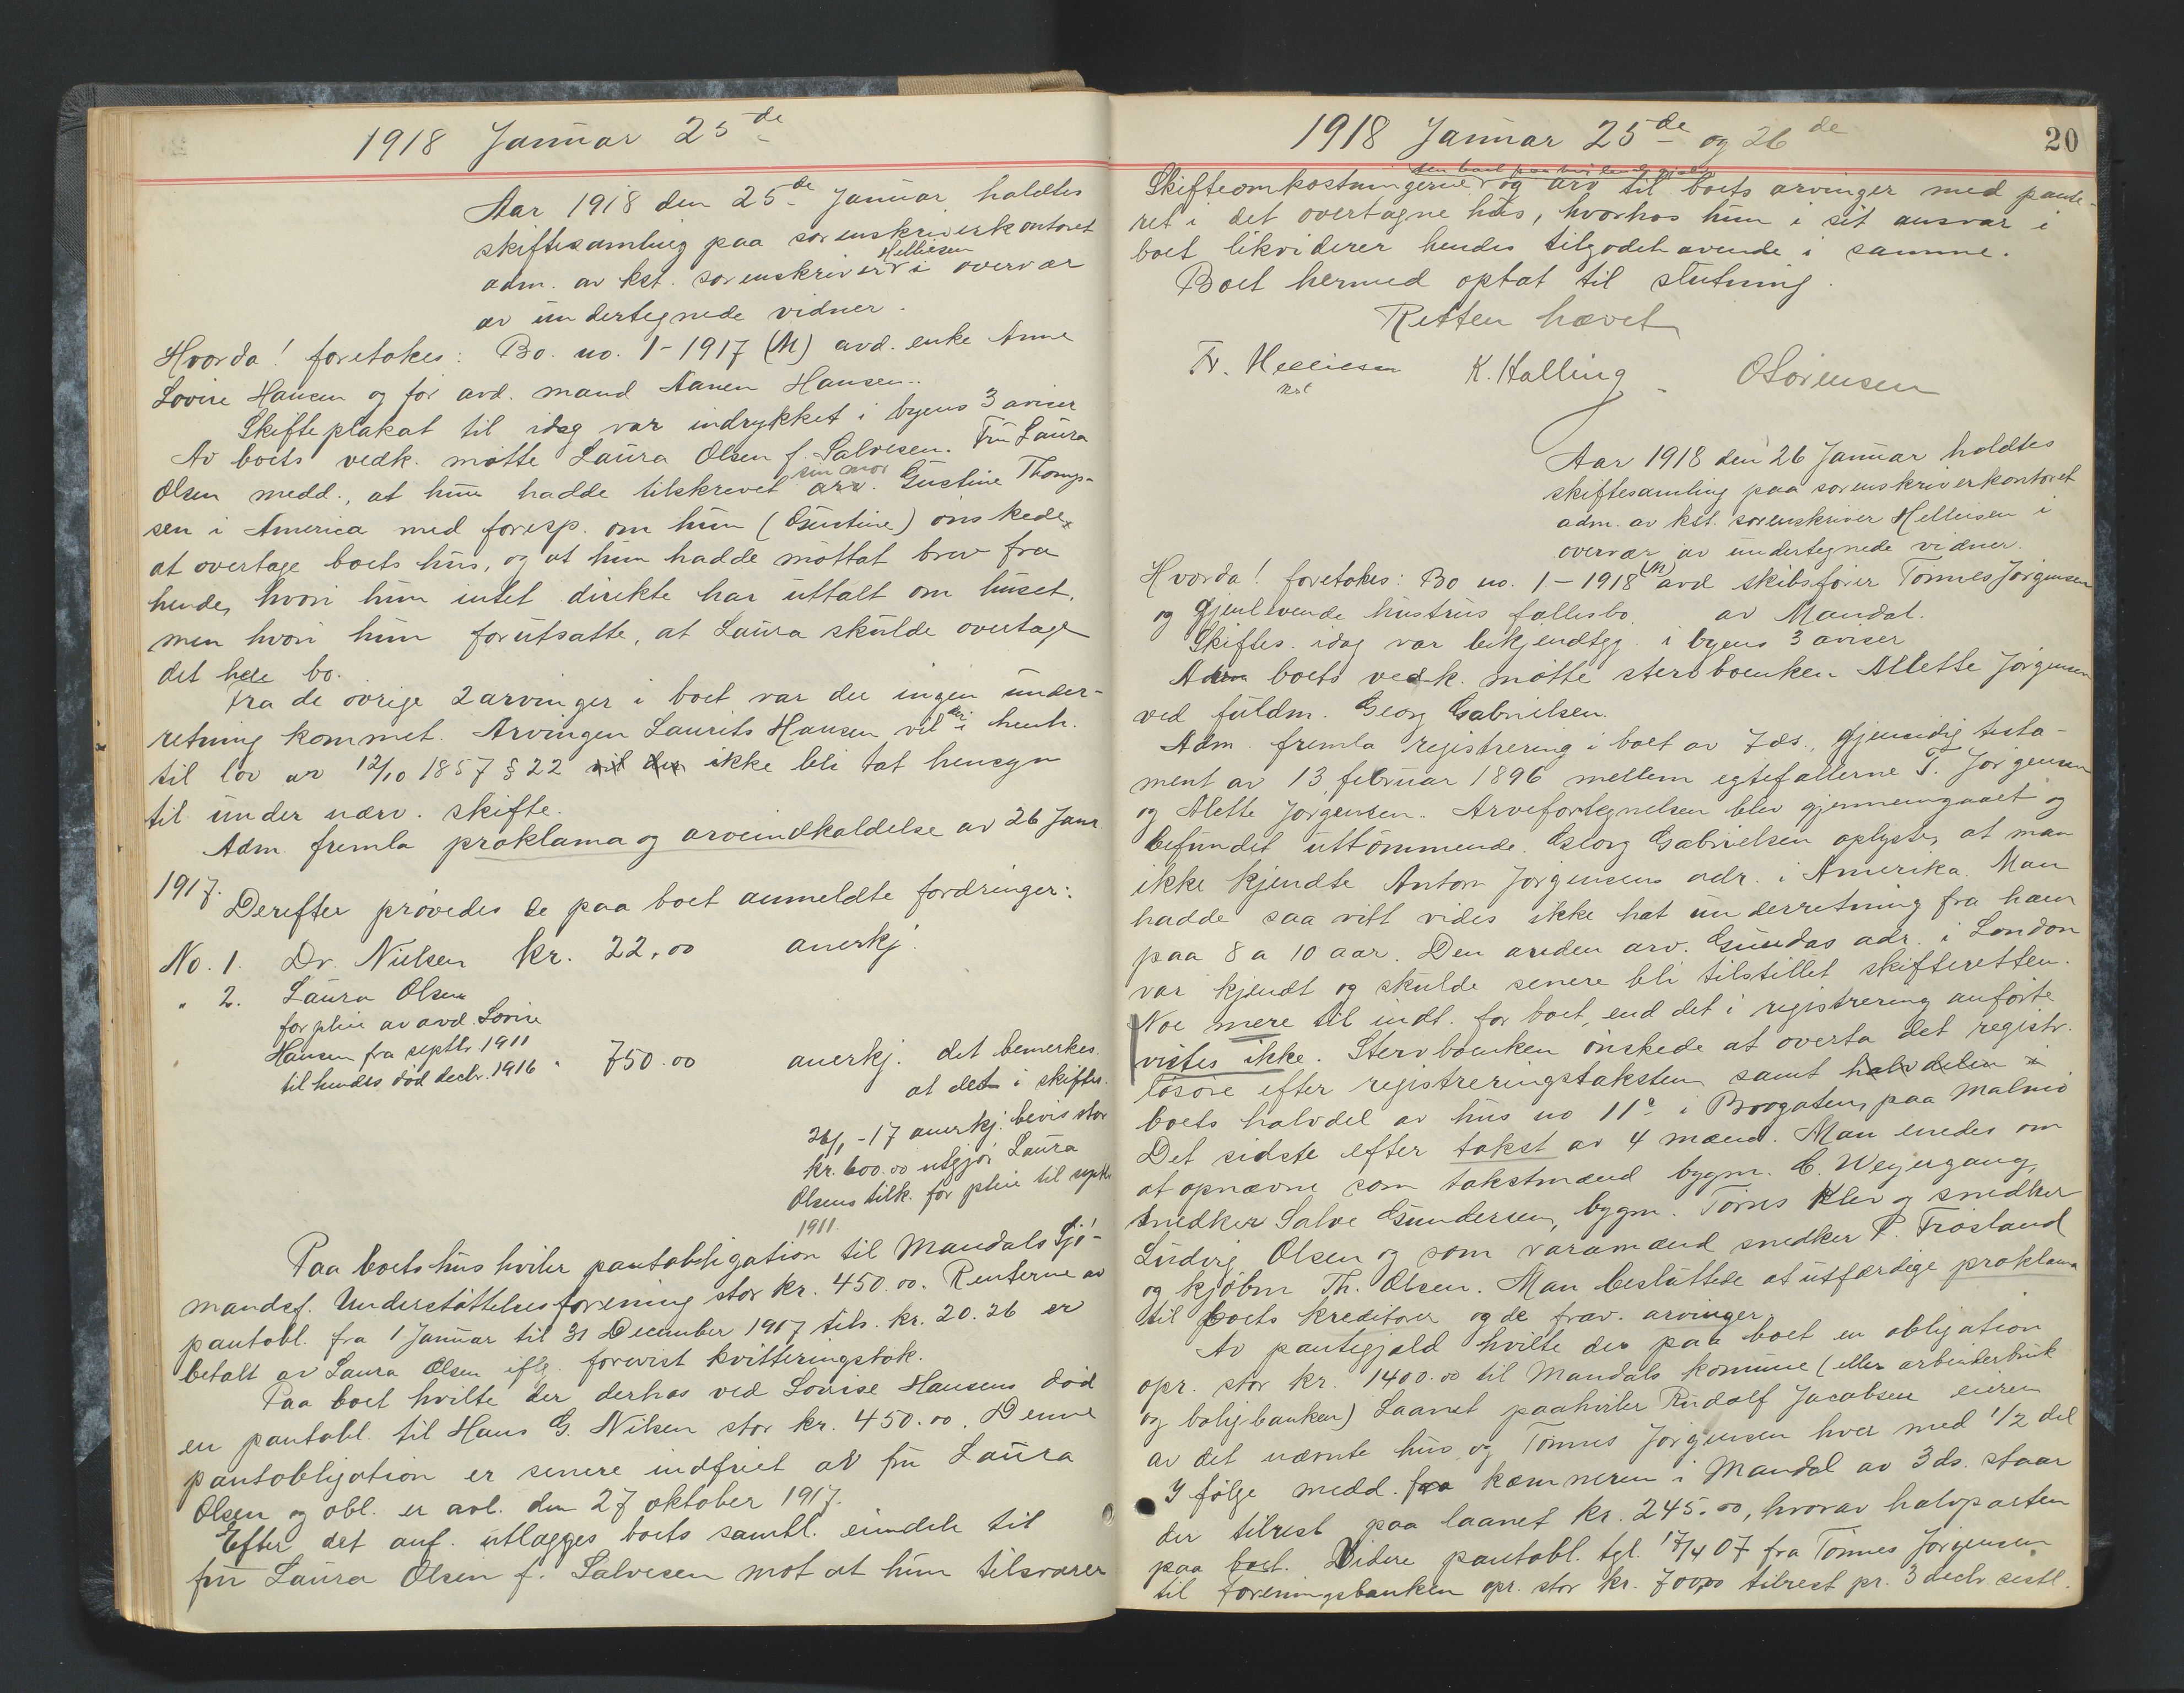 1918 Januar 25de
Aar 1918 den 25de Januar holdtes
skiftesamling paa sorenskriverkontoret
adm. av kst. sorenskriver Helliesen i overvær
av undertegnede vidner.
Hvorda! foretokes: Bo. no. 1-1917 (M) avd. enke Anne
Lovise Hansen og før avd. mand Aanen Hansen..
Skifteplakat til idag var indrykket i byens 3 aviser
Av boets vedk. møtte Laura Olsen f. Salvesen. Fru Laura
Olsen medd., at hun hadde tilskrevet sin mor arv. Gustine Thomp-
sen i America med foresp. om hun (Gustine) ønskede
at overtage boets hus, og at hun hadde mottat brev fra
hende, hvori hun intet direkte har uttalt om huset,
men hvori hun forutsatte, at Laura skulde overtage
det hele bo.
Fra de øvrige 2 arvinger i boet var der ingen under-
retning kommet. Arvingen Laurits Hansen vil der i henh.
til lov av 12/10 1857 § 22 vil der ikke bli tat hensyn
til under nærv. skifte.
Adm. fremla proklama og arveindkaldelse av 26 Janr.
1917.
Derefter prøvedes de paa boet anmeldte fordringer:
No. 1. Dr. Nielsen kr. 22.00 anerkj.
" 2. Laura Olsen
for pleie av avd. Lovise
Hansen fra septbr. 1911
til hendes død decbr. 1916 " 750.00 anerkj. det bemerkes.
at det i skiftes.
26/1-17 anerkj. bevis stor
kr. 600.00 utgjør Laura
Olsens tilk. for pleie til septbr
1911.
Paa boets hus hviler pantobligation til Mandals Sjø-
mandsf. Understøttelsesforening stor kr. 450.00. Renterne av
pantobl. fra 1 Januar til 31 December 1917 tils. kr. 20.26 er
betalt av Laura Olsen iflg. forevist kvitteringsbok.
Paa boet hvilte der derhos ved Lovise Hansens død
en pantobl. til Hans G. Nilsen stor kr. 450.00. Denne
pantobligation er senere indfriet av fru Laura
Olsen og obl. er avl. den 27 oktober 1917.
Efter det anf. utlægges boets samtl. eiendele til
fru Laura Olsen f. Salvesen mot at hun tilsvarer
1918 Januar 25de og 26de
20
Skifteomkostningerne og arv til boets arvinger med pante-
ret i det overtagne hus, hvorhos hun i sit ansvar i
boet likviderer hendes tilgodehavende i samme.
Boet hermed optat til slutning.
Retten hævet
Fr. Helliesen K. Halling OSørensen
kst
Aar 1918 den 26 Januar holdtes
skiftesamling paa sorenskriverkontoret
adm. av kst. sorenskriver Helliesen i
overvær av undertegnede vidner.
Hvorda! foretokes: Bo no. 1-1918 (M) avd skibsfører Tønnes Jørgensen
og gjenlevende hustrus fællesbo. av Mandal.
Skiftes. idag var bekjendtgj. i byens 3 aviser
boets vedk. møtte stervboenken Alette Jørgensen
ved fuldm. Georg Gabrielsen.
Adm. fremla registrering i boet av 7 ds., gjensidig testa-
ment av 13 februar 1896 mellem egtefællerne T. Jørgensen
og Alette Jørgensen. Arvefortegnelsen blev gjennemgaaet og
befundet uttømmende. Georg Gabrielsen oplyste, at man
ikke kjendte Anton Jørgensens adr. i Amerika. Man
hadde saa vitt vides ikke hat underretning fra ham
paa 8 a 10 aar. Den anden arv. Gundas adr. i London
var kjendt og skulde senere bli tilstillet skifteretten.
Noe mere til indt. for boet, end det i registrering anførte
vistes ikke. Stervboenken ønskede at overta det registr.
løsøre efter registreringstaksten samt halvdelen i
boets halvdel av hus no 11a i Brogaten paa Malmø
Det sidste efter takst av 4 mænd. Man enedes om
at opnævne som takstmænd bygm. C. Weyergang,
snedker Salve Gundersen, bygm. Tørres Klev og snedker
Ludvig Olsen og som varamænd snedker P. Frøsland
og kjøbm Th. Olsen. Man besluttede at utfærdige proklama
til boets kreditorer og de frav. arvinger.
Av pantegjæld hvilte der paa boet en obligation
opr. stor kr. 1400.00 til Mandals komune (eller arbeiderbruk
og boligbanken) Laanet paahviler Rudolf Jacobsen eieren
av det nævnte hus og Tønnes Jørgensen hver med 1/2 del
I følge medd. fra kæmneren i Mandal av 3 ds. staar
der tilrest paa laanet kr. 245.00, hvorav halvparten
paa boet. Videre pantobl. tgl. 17/4 07 fra Tønnes Jørgensen
til Foreningsbanken opr. stor kr. 700,00 tilrest pr. 3 decbr. sestl.